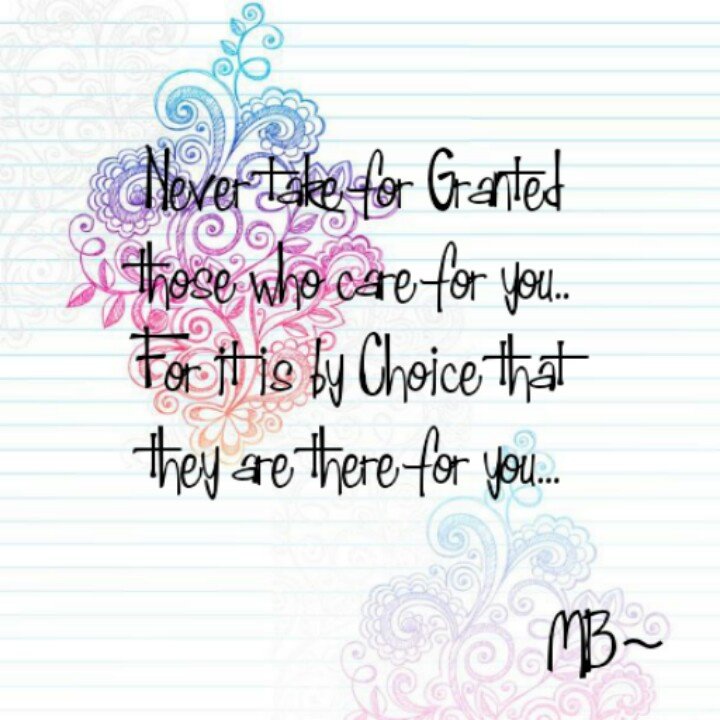 Never take for Granted
those who care for you..
For it is by Choice that
they are there for you...
MB~